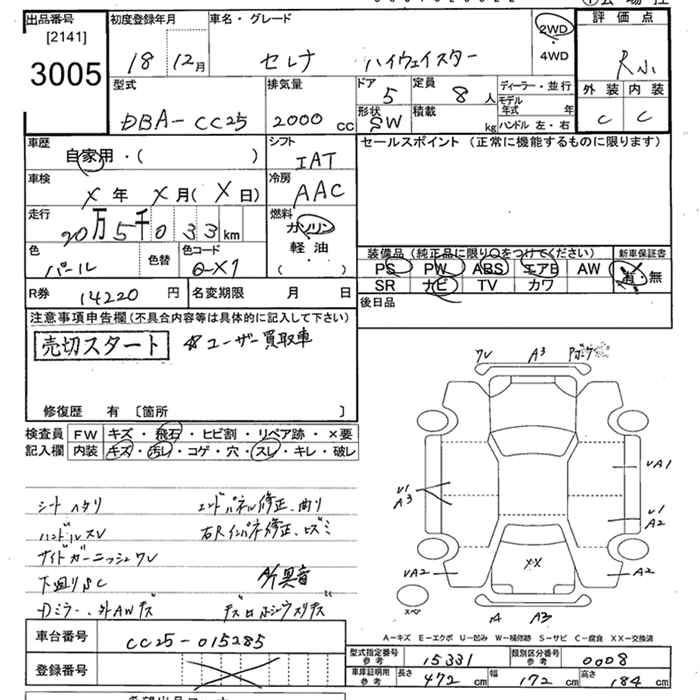 出品番号 初度登録年月 車名・グレード 評価点
[2141]
3005
18 12月 セレナ ハイウェイスター 2WD・4WD R小
型式 排気量 ドア 定員 ディーラー・並行 外装 内装
DBA-CC25 2000cc 5 8人 モデル年式 年 C C
形状 積載 kg ハンドル 左・右
SW
車歴 シフト セールスポイント (正常に機能するものに限ります)
自家用・( ) IAT
車検 冷房
X年 X月(X日) AAC
走行 燃料
20万5千033km ガソリン
軽油
( )
色 色替 色コード 装備品(純正品に限り○をつけてください) 新車保証書
パール QX1 PS PW ABS エアB AW 有 無
SR ナビ TV カワ
R券 14220円 名変期限 月 日 後日品
注意事項申告欄(不具合内容等は具体的に記入して下さい)
売切スタート ユーザー買取車
修復歴 有 [箇所 ]
検査員 FW キズ・飛石・ヒビ割・リペア跡・×要
記入欄 内装 キズ・汚レ・コゲ・穴・スレ・キレ・破レ
シートヘタリ エンドパネル修正、曲り
ハンドルスレ 右Rインパネ修正、ヒズミ
サイドガーニッシュワレ
下廻りSC 所異音
Dミラー、外AWキズ
ワレ A3
UA1
U1 A3
U1 A2
XX
UA2 A2
スペ
A3
A-キズ E-エクボ U-凹み W-補修跡 S-サビ C-腐食 XX-交換済
車台番号 CC25-015285
型式指定番号 参考 15331 類別区分番号 参考 0008
登録番号
車庫証明用 参考 長さ 472cm 幅 172cm 高さ 184cm